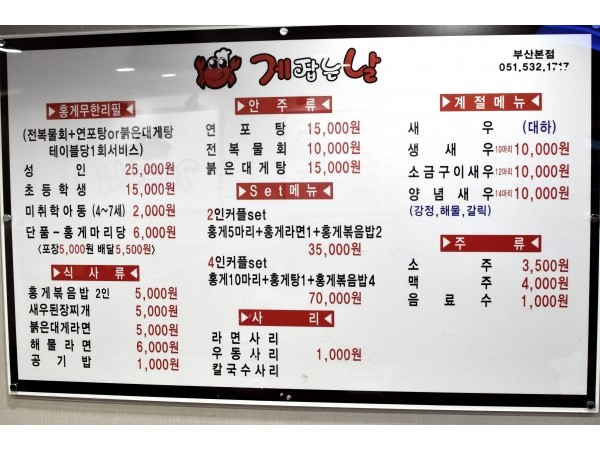 게잡는날
부산본점
051.532.1717
▶홍게무한리필◀
(전복물회+연포탕or붉은대게탕
테이블당1회서비스)
성 인 25,000원
초등학생 15,000원
미취학아동 (4~7세) 2,000원
단품-홍게마리당 6,000원
<포장5,000원 배달5,500원>
▶식사류◀
홍게볶음밥 2인 5,000원
새우된장찌개 5,000원
붉은대게라면 5,000원
해물라면 6,000원
공기밥 1,000원
▶안주류◀
연포탕 15,000원
전복물회 10,000원
붉은대게탕 15,000원
▶Set메뉴◀
2인커플set
홍게5마리+홍게라면1+홍게볶음밥2
35,000원
4인커플set
홍게10마리+홍게탕1+홍게볶음밥4
70,000원
▶사리◀
라면사리
우동사리 1,000원
칼국수사리
▶계절메뉴◀
새 우 (대하)
생새우 10마리 10,000원
소금구이새우 12마리 10,000원
양념새우 14마리 10,000원
(강정,해물,갈릭)
▶주류◀
소 주 3,500원
맥 주 4,000원
음료수 1,000원